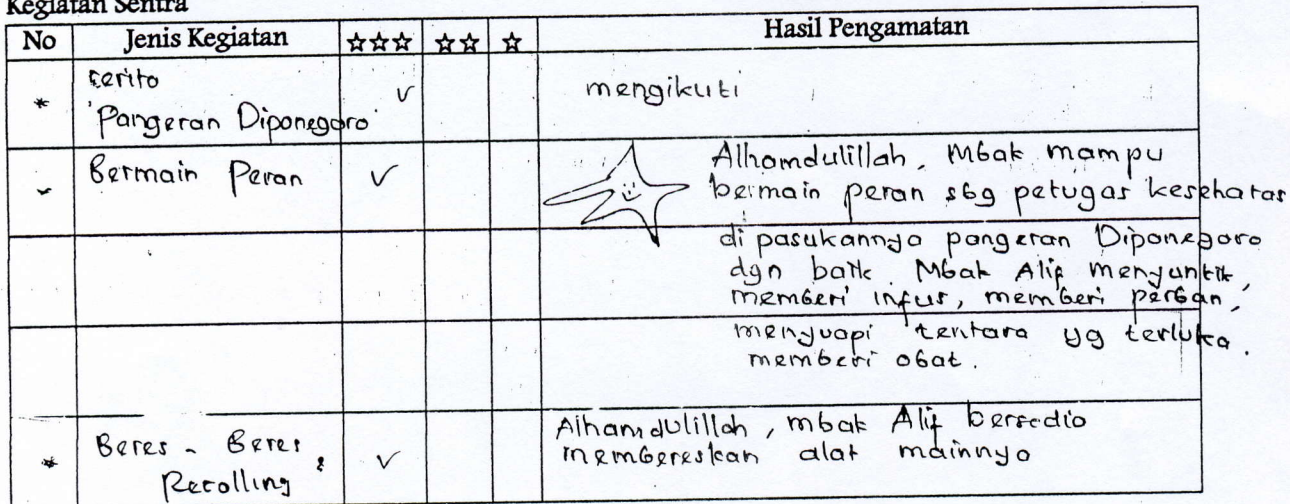 Kegiatan Sentra
No Jenis Kegiatan ☆☆☆ ☆☆ ☆ Hasil Pengamatan
* cerita ✓ mengikuti
'Pangeran Diponegoro'
Bermain Peran ✓ Alhamdulillah, Mbak mampu
bermain peran sbg petugas kesehatan
di pasukannya pangeran Diponegoro
dgn baik. Mbak Alif menyuntik,
memberi infus, memberi perban,
menyuapi tentara yg terluka.
memberi obat.
* Beres - Beres, ✓ Alhamdulillah, mbak Alif bersedia
Recolling membereskan alat mainnya